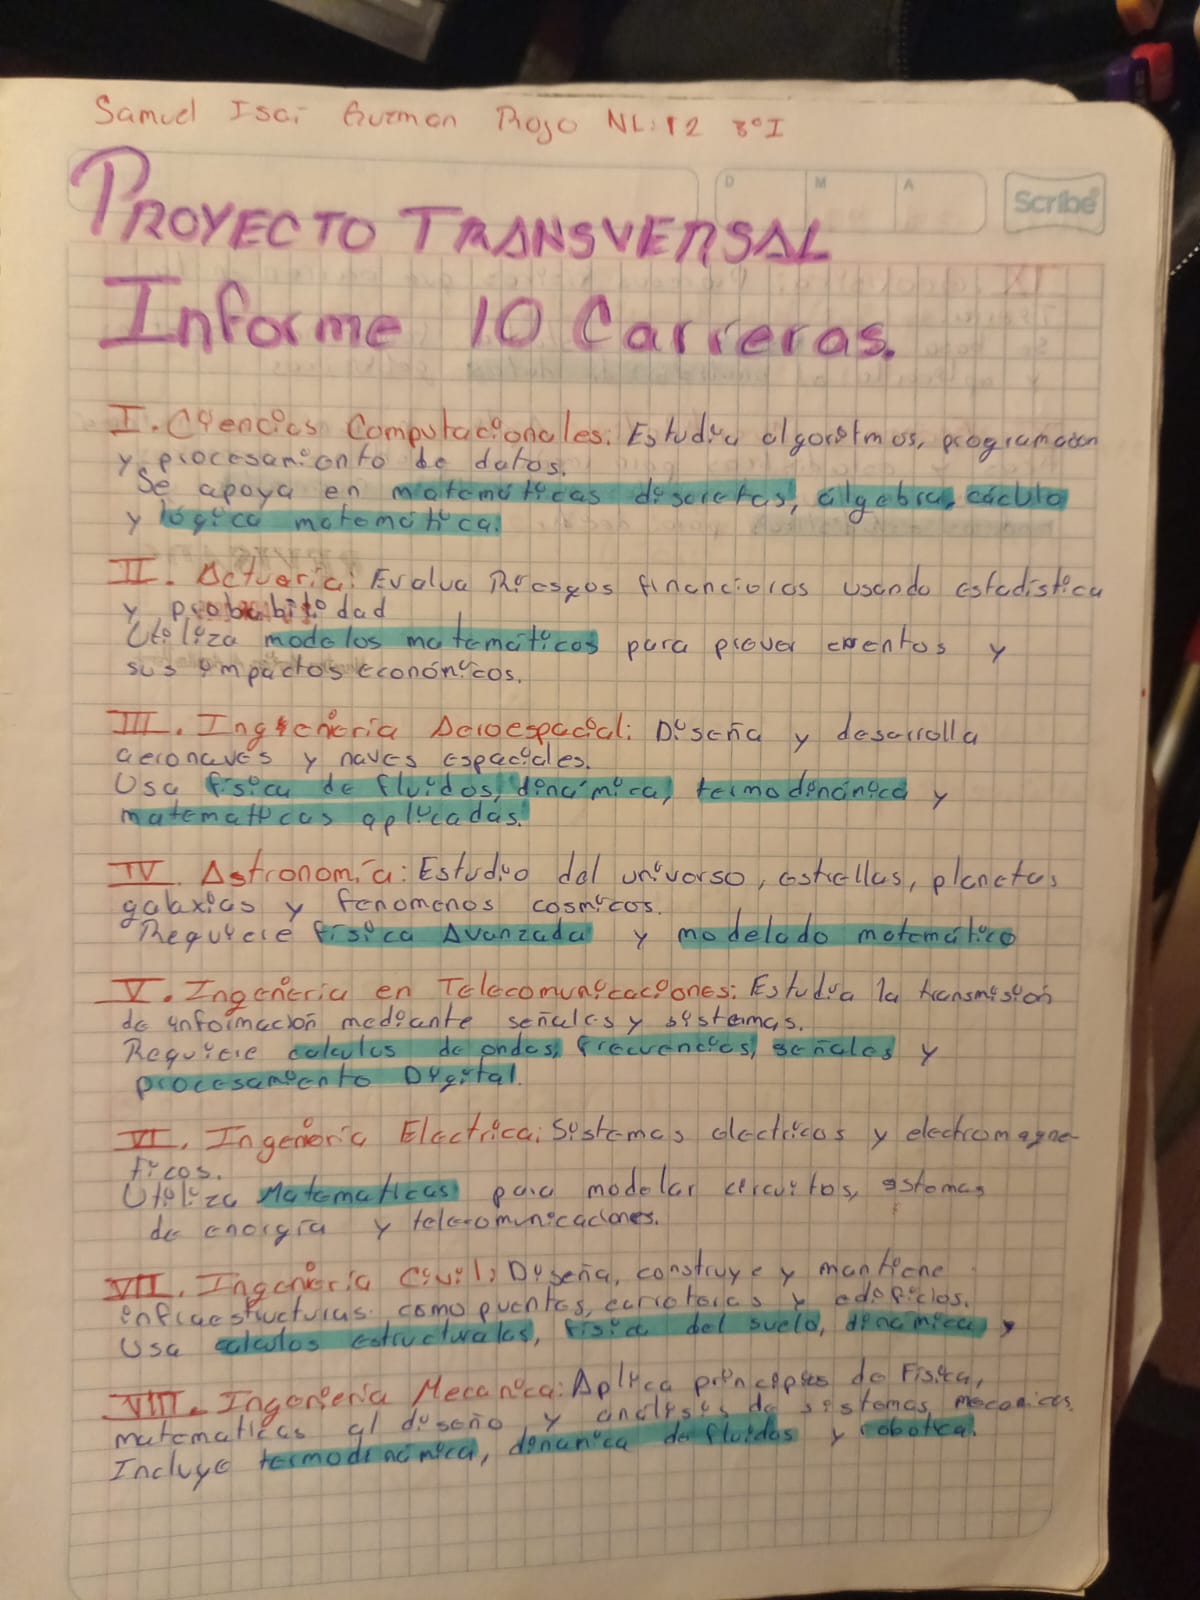 Samuel Isai Guzman Rojo NL:12 3°I
D M A
Scribe
PROYECTO TRANSVERSAL
Informe 10 Carreras.
I. Ciencias Computacionales: Estudia algoritmos, programacion
y procesamiento de datos.
Se apoya en matemáticas discretas, álgebra, cáculo
y lógica matemática.
II. Actuaria: Evalua Riesgos financieros usando estadística
y probabilidad
Utiliza modelos matemáticos para prever eventos y
sus impactos económicos.
III. Ingeñería Aeroespacial: Diseña y desarrolla
aeronaves y naves espaciales.
Usa física de fluidos, dinámica, termodinámica y
matematicas aplicadas.
IV. Astronomía: Estudio del universo, estrellas, planetas
galaxias y fenomenos cosmicos.
Requiere física Avanzada y modelado matemático
V. Ingeñeria en Telecomunicaciones: Estudia la transmisión
de información mediante señales y sistemas.
Requiere calculos de ondas, frecuencias, señales y
procesamiento Digital.
VI. Ingeñeria Electrica: Sistemas electricos y electromagne-
ticos.
Utiliza Matematicas para modelar circuitos, sistemas
de energía y telecomunicaciones.
VII. Ingeniería Civil: Diseña, construye y mantiene
infraestructuras como puentes, carreteras y edificios.
Usa calculos estructurales, física del suelo, dinámica y
VIII. Ingeniería Mecanica: Aplica principios de Física,
matematicas al diseño y análisis de sistemas mecanicos.
Incluye termodinámica, dinamica de fluidos y robotica.